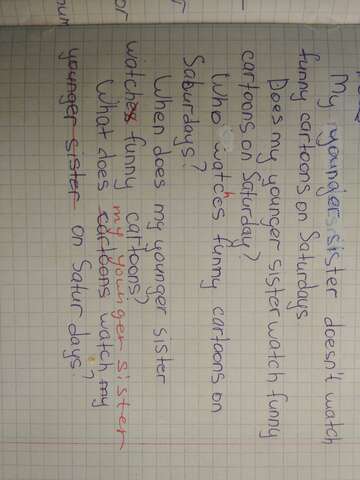 My younger sister doesn't watch
funny cartoons on Saturdays
Does my younger sister watch funny
cartoons on Saturday?
Who watches funny cartoons on
Saturdays?
When does my younger sister
watches funny cartoons?
my younger sister
What does cartoons watch my
younger sister on Saturdays?